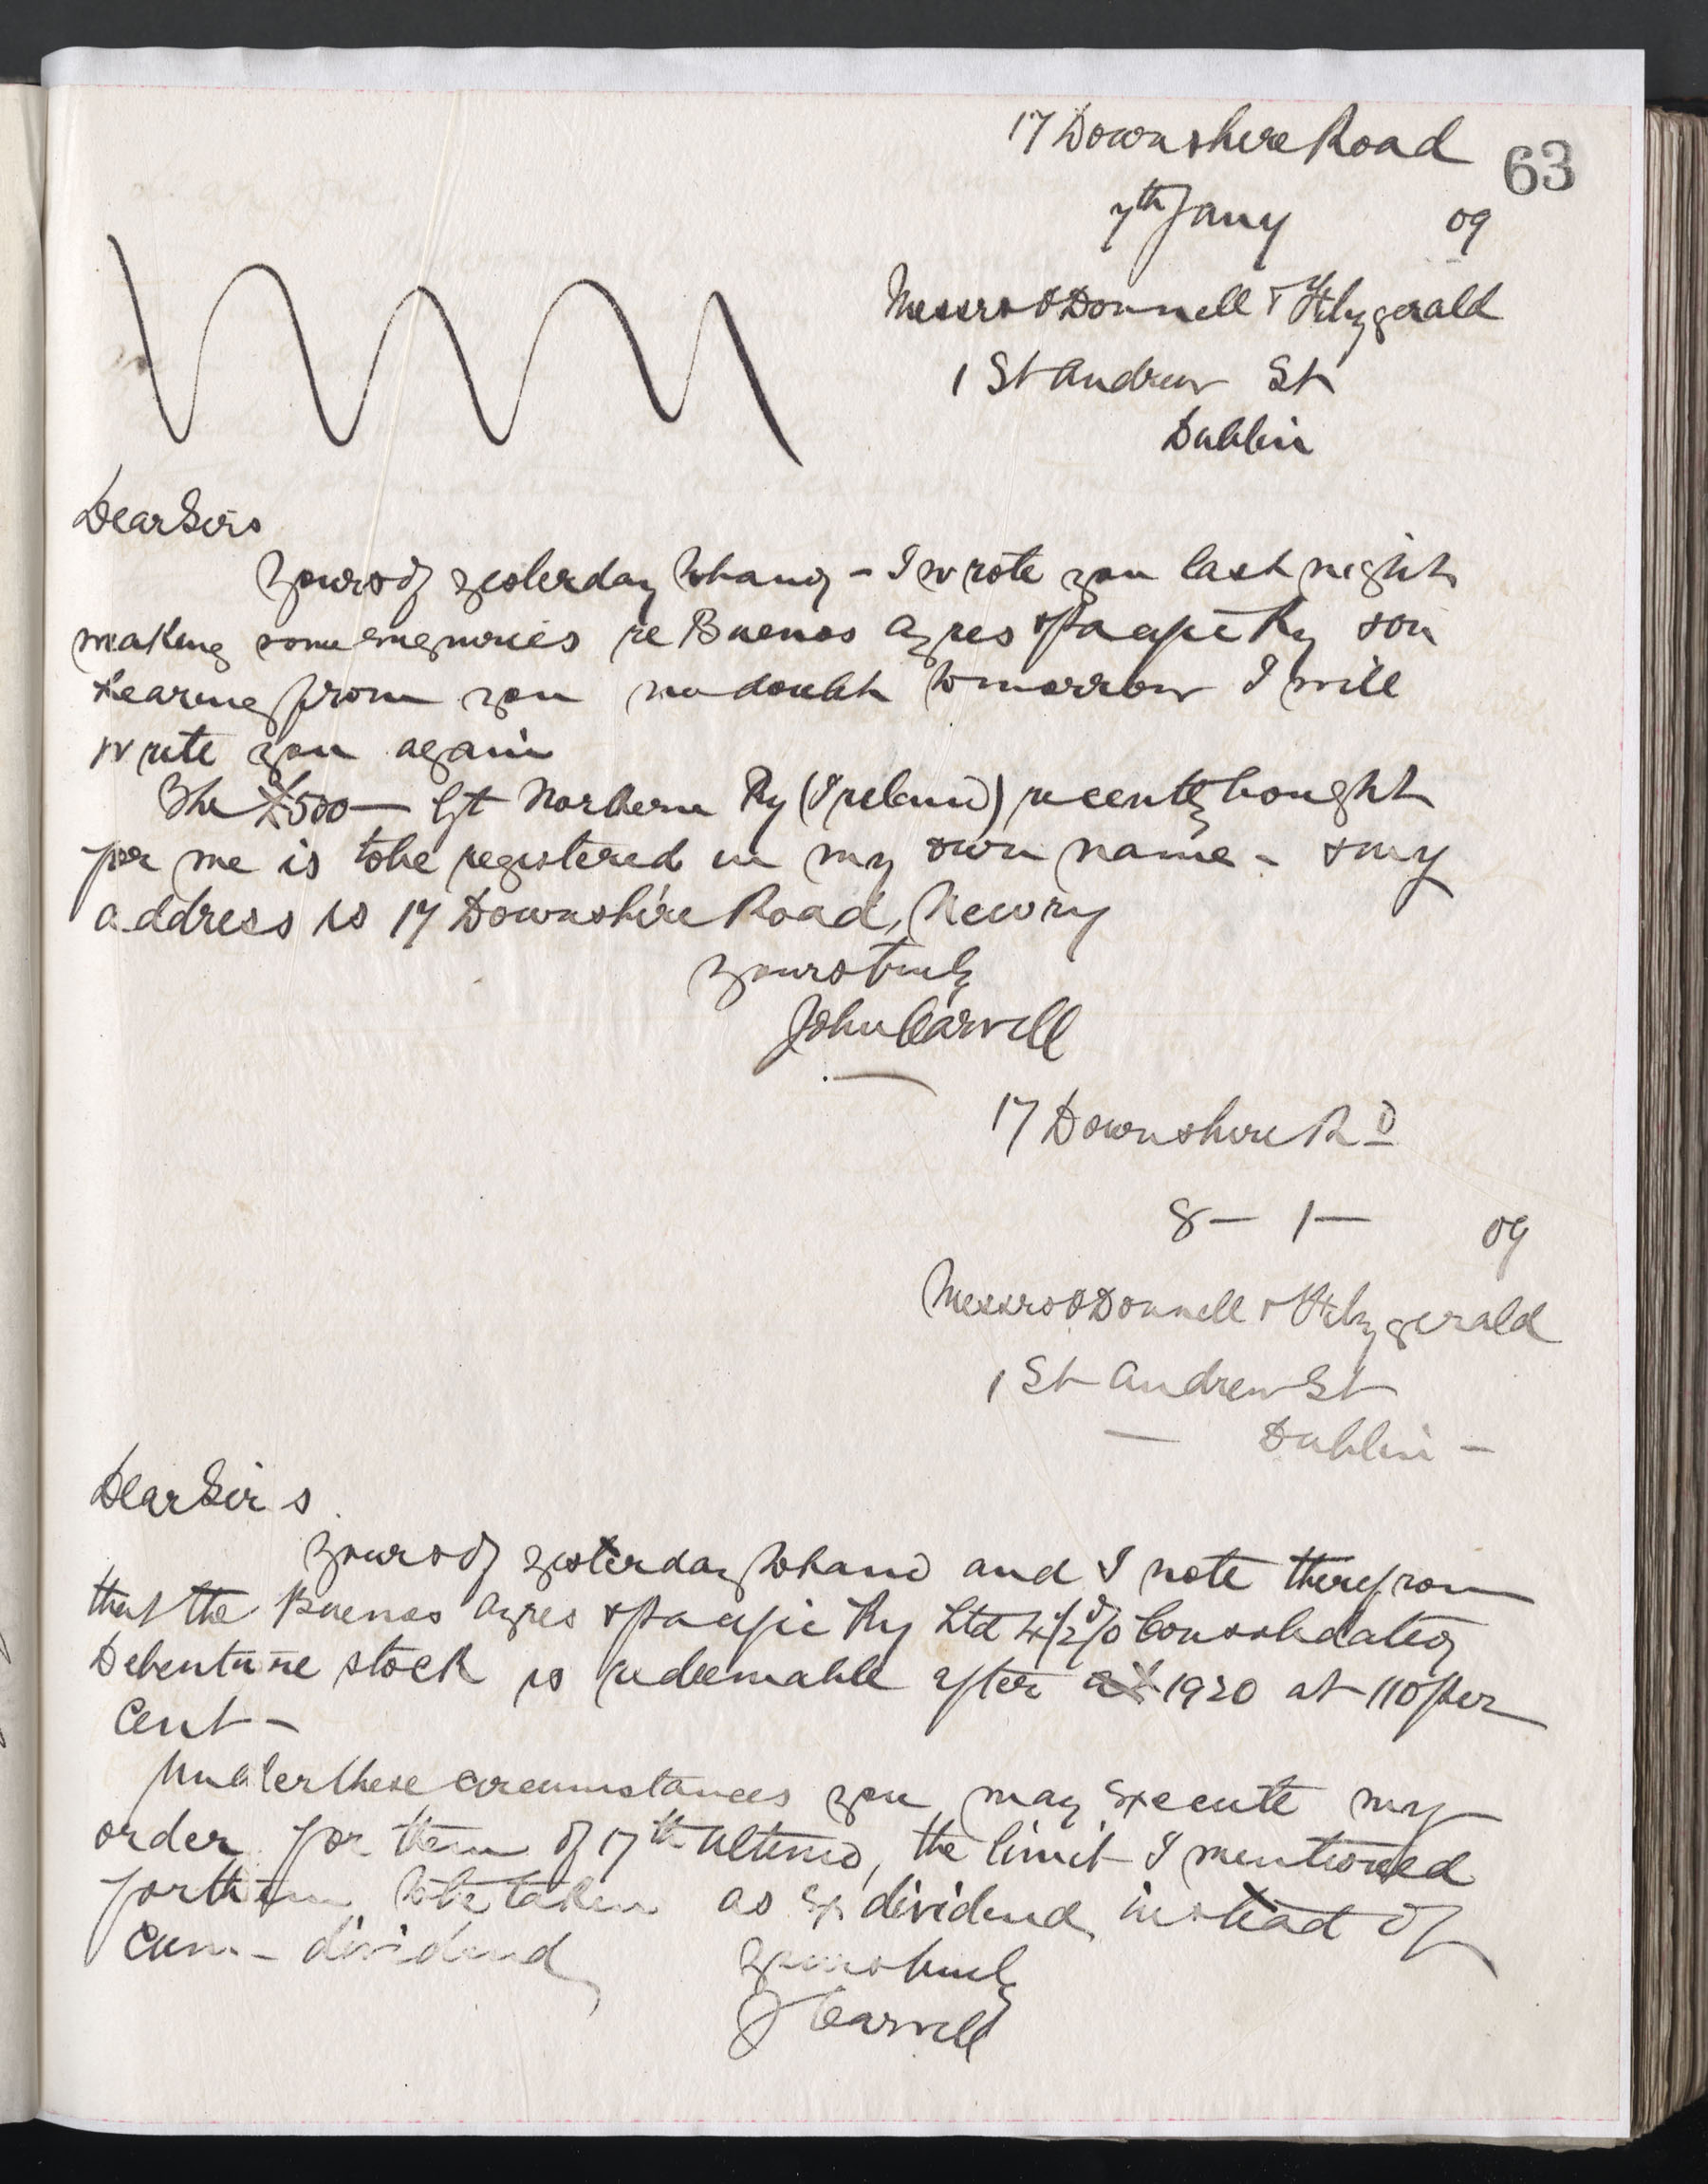 17 Downshire Road
63
7th Jany 09
Messrs O Donnell & Fitzgerald
1 St Andrew St
Dublin
Dear Sirs
Yours of yesterday to hand - I wrote you last night
making some enquiries re Buenos Ayres & Pacific Ry & on
hearing from you no doubt tomorrow I will
write you again
The £500 — Gt Northern Ry (Ireland) recently bought
for me is to be registered in my own name - & my
address is 17 Downshire Road, Newry
Yours truly
John Carvell
17 Downshire Rd
8 — 1 — 09
Messrs O Donnell & Fitzgerald
1 St Andrew St
— Dublin —
Dear Sirs
Yours of yesterday to hand and I note therefrom
that the Buenos Ayres & Pacific Ry Ltd 4½% Consolidated
Debenture stock is redeemable after 1920 at 110 per
Cent -
Under these circumstances you may execute my
order for them of 17th ultimo, the limit I mentioned
for them to be taken as Ex dividend instead of
Cum - dividend
Yours truly
J Carvell